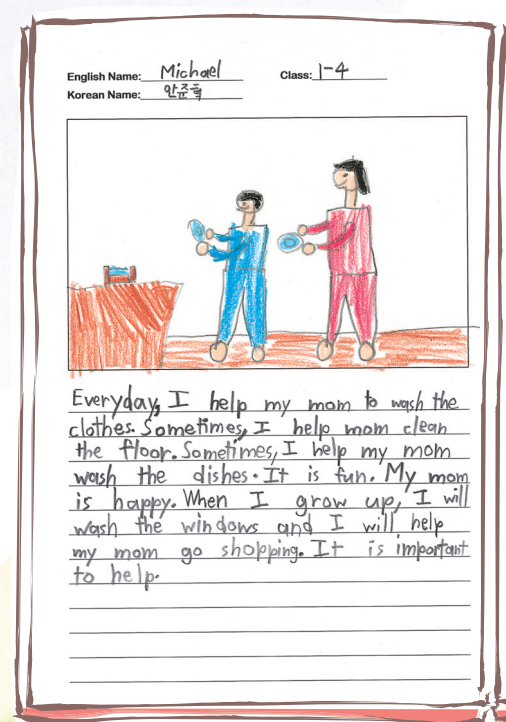 English Name: Michael Class: 1-4
Korean Name: 안준혁
Everyday, I help my mom to wash the
clothes. Sometimes, I help mom clean
the floor. Sometimes, I help my mom
wash the dishes. It is fun. My mom
is happy. When I grow up, I will
wash the windows and I will help
my mom go shopping. It is important
to help.